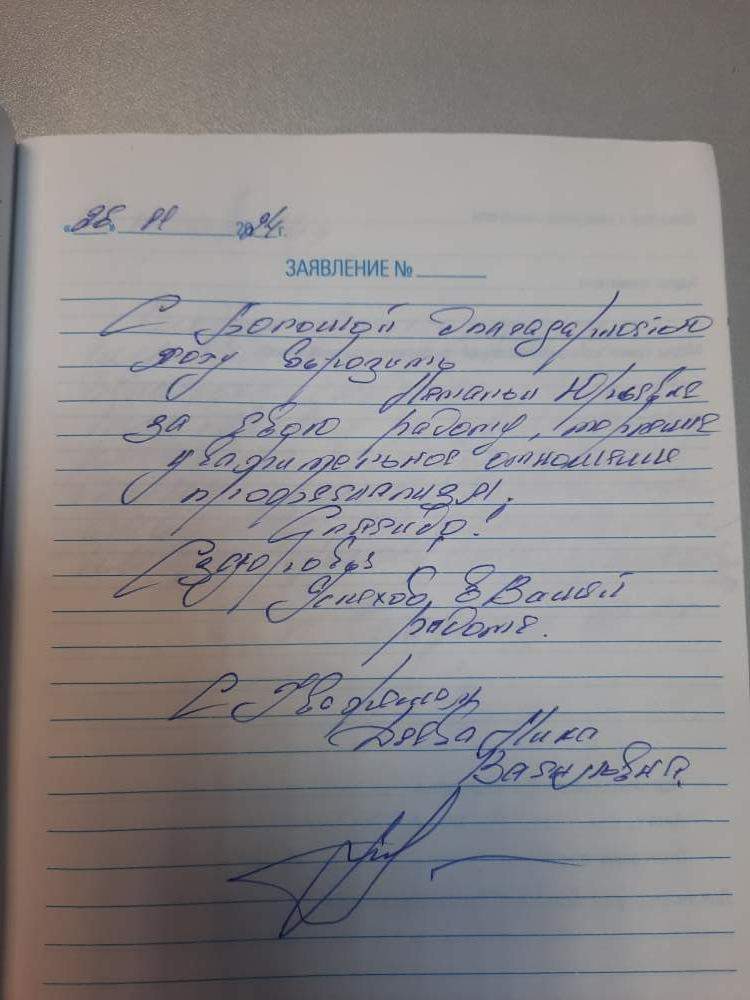 «26» 11 2024г.
ЗАЯВЛЕНИЕ №
С Большой благадарностью
хочу вырозить
Юрьевне
за свою работу, терпение
уважительное отношение
професианализм.
Спасибо!
Здоровья
Успехов в Вашей
работе.
С Уважением
Нина
Васильевна.